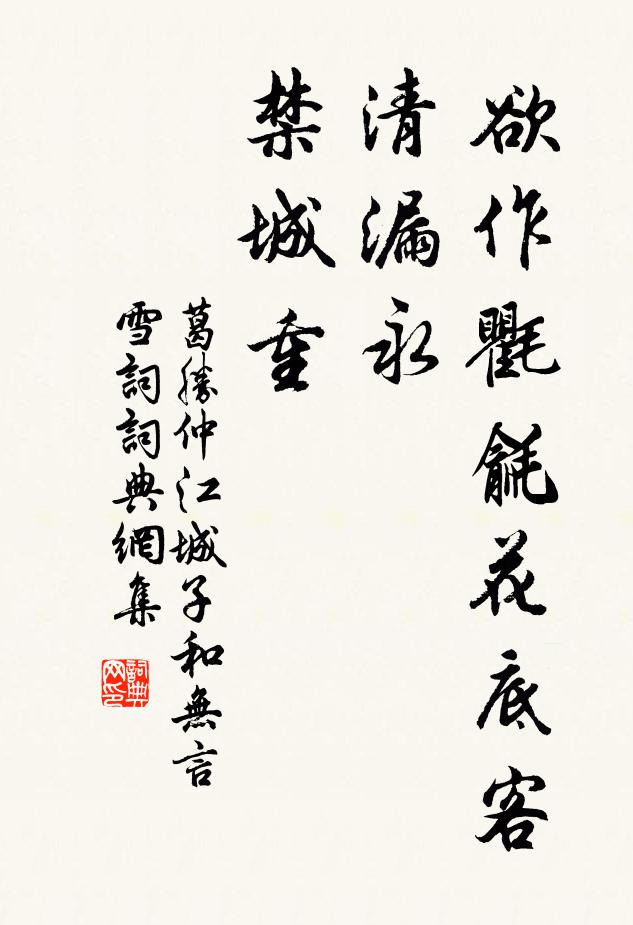 欲作氍毹花底客
清漏永
禁城重
葛勝仲江城子和無言
雪詞詞典網集
詞典
网印